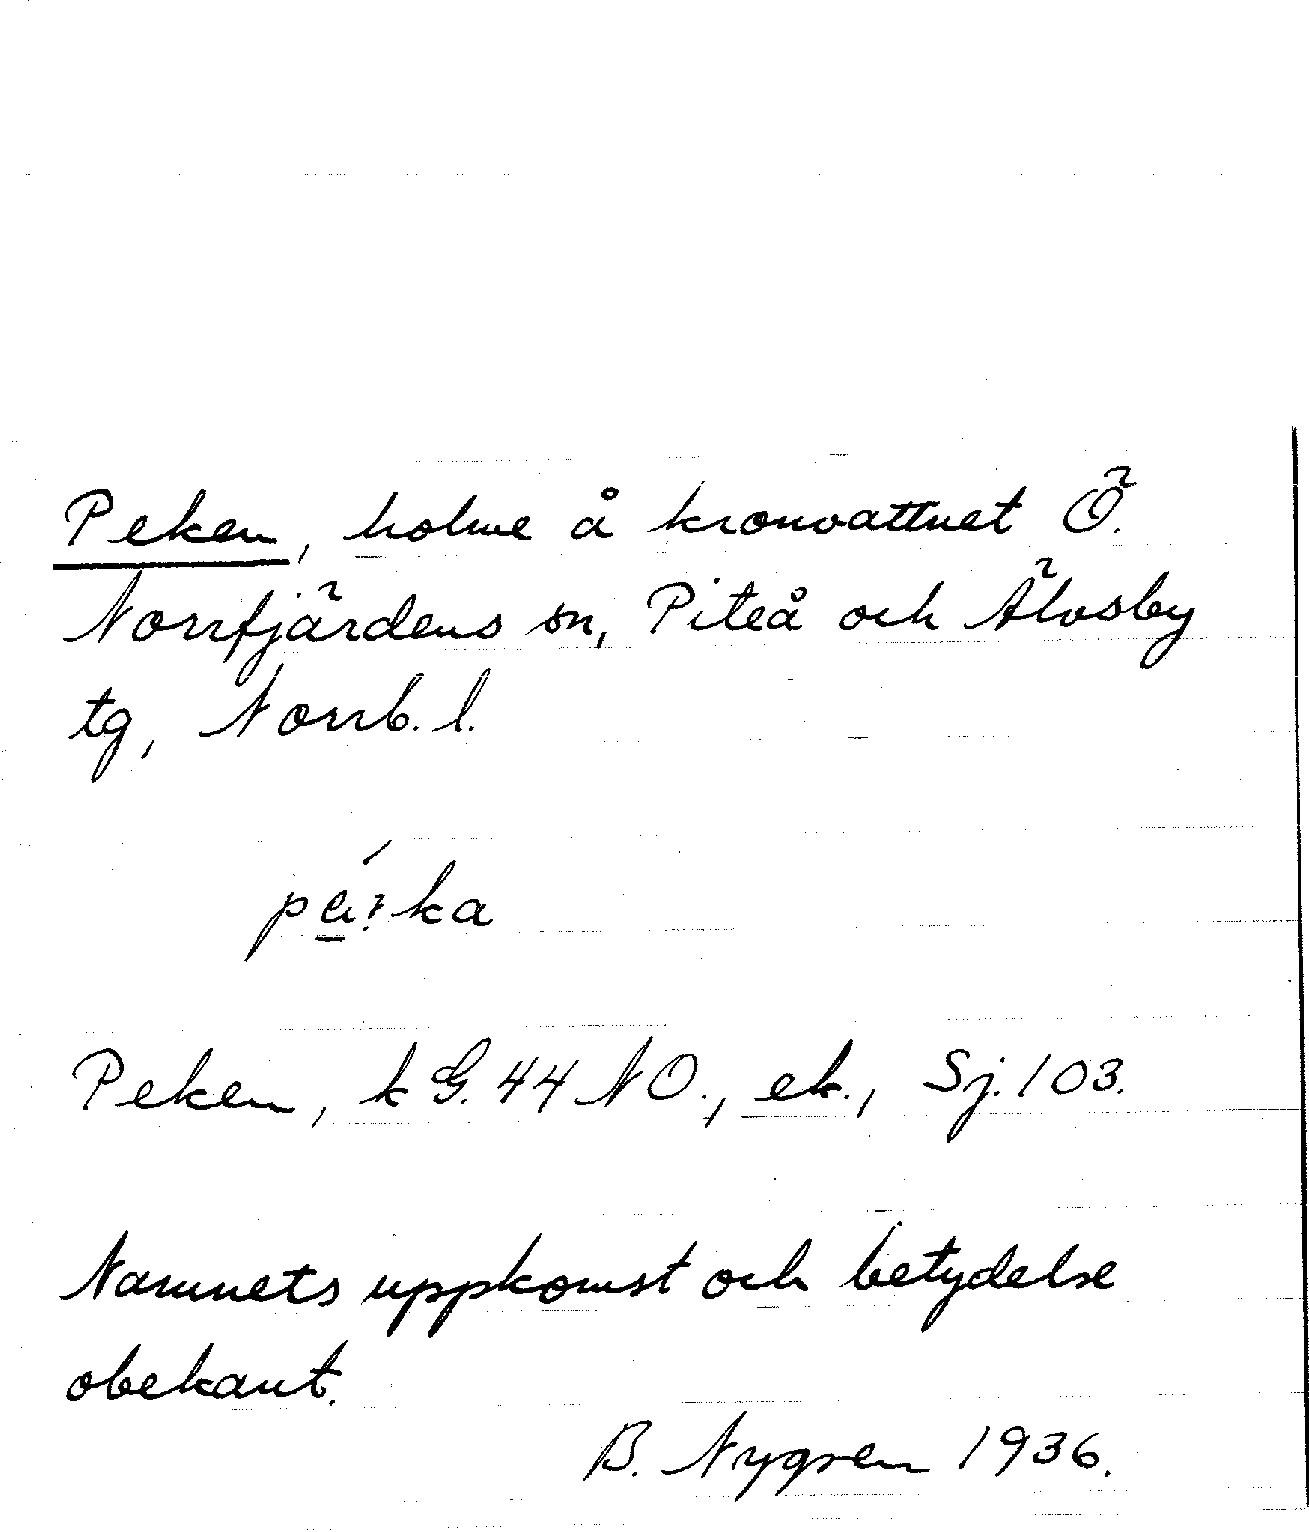 Peken, holme å kronvattnet Ö.
Norrfjärdens sn, Piteå och Älvsby
tg, Norrb. l.
Peken, k G. 44 NO., ek., Sj. 103.
Namnets uppkomst och betydelse
obekant.
B. Nygren 1936.